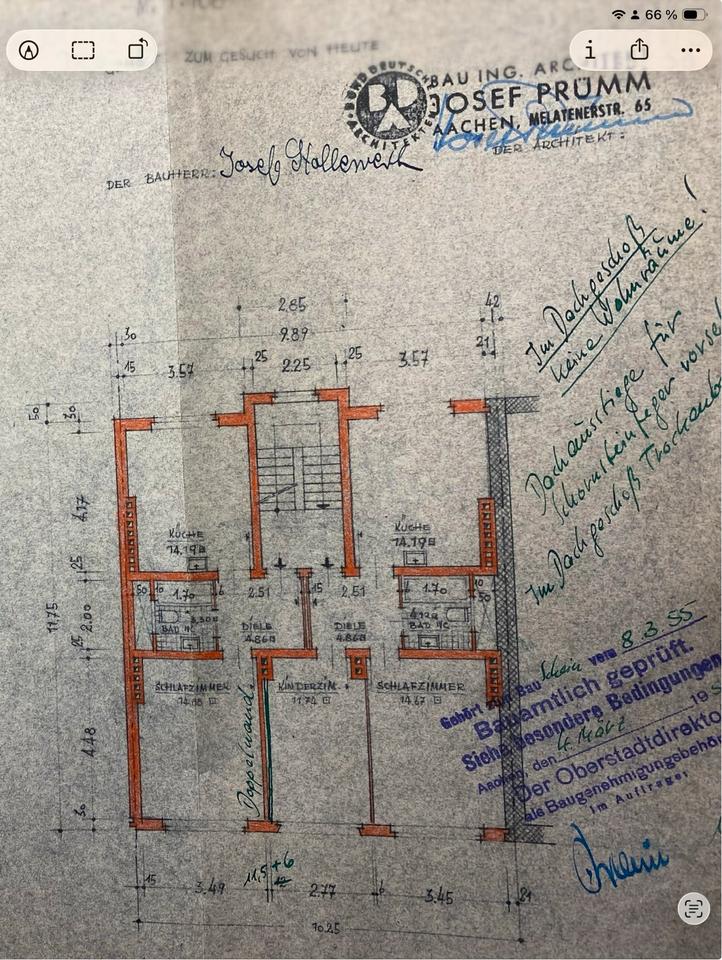 66 %
ZUM GESUCH VON HEUTE
BUND DEUTSCHER
ARCHITEKTEN
BDA
BAU ING.
JOSEF PRÜMM
AACHEN, MELATENERSTR. 65
DER ARCHITEKT:
DER BAUHERR:
Josef
Im Dachgeschoß
keine Wohnräume!
Dachausstiege für
Schornsteinfeger
Im Dachgeschoß
2.85
42
30
9.89
21
15
3.57
25
2.25
25
3.57
50
30
4.17
KÜCHE
14.19
KÜCHE
14.19
25
11.75
2.00
25
50
10
1.70
6
2.51
15
2.51
1.70
10
50
BAD WC
DIELE
4.86
DIELE
4.86
BAD WC
SCHLAFZIMMER
KINDERZIM.
SCHLAFZIMMER
14.67
Doppelwand
4.48
30
Gehört zum Bauschein vom 8.3.55
Bauamtlich geprüft.
Siehe besondere Bedingungen
Aachen, den 4. März 19
Der Oberstadtdirektor
als Baugenehmigungsbehör
Im Auftrage:
15
3.49
11,5+6
2.77
6
3.45
21
10.25